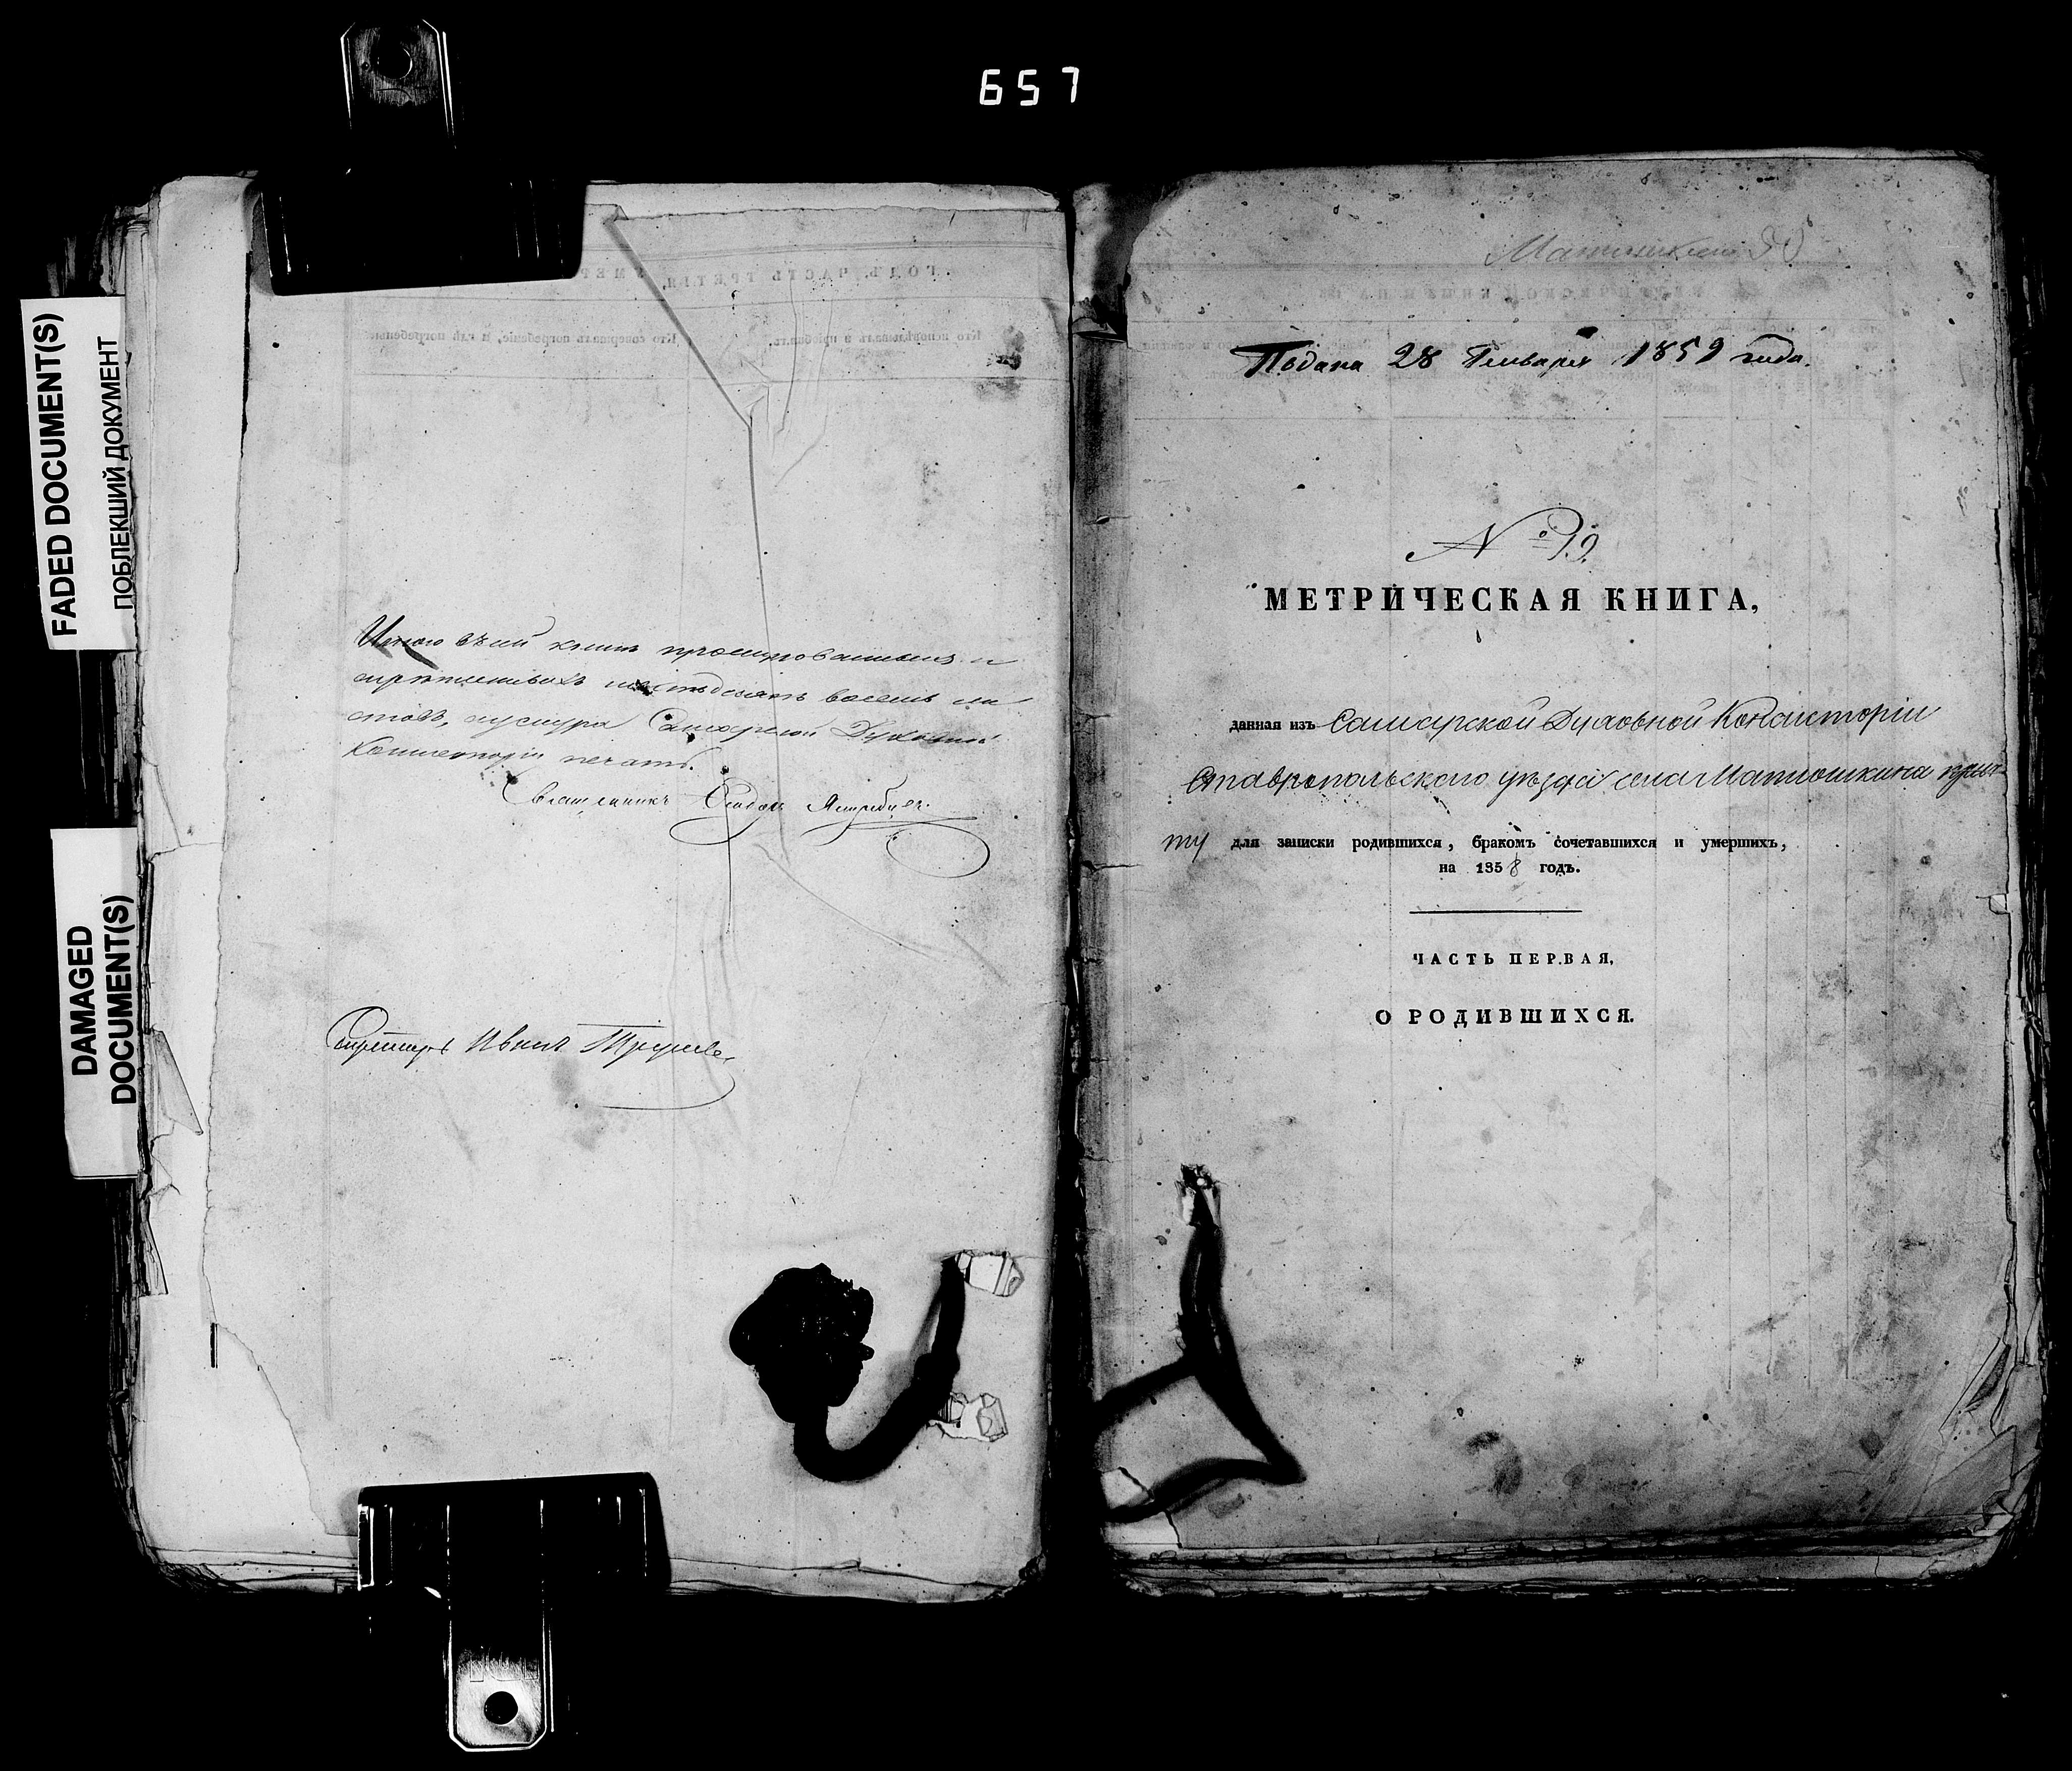 657
FADED DOCUMENT(S)
ПОБЛЕКШИЙ ДОКУМЕНТ
DAMAGED
DOCUMENT(S)
Итого въ сей книгѣ прошнурованныхъ и
скрѣпленныхъ шестьдесятъ восемь ли
стовъ, шнура Самарской Духовной
Консисторіи печать.
Священникъ
Секретарь Иванъ
Подана 28 Генваря 1859 года.
№ 19.
МЕТРИЧЕСКАЯ КНИГА,
данная изъ Самарской Духовной Консисторіи
Ставропольскаго уѣзда села Матюшкина прич
ту для записки родившихся, бракомъ сочетавшихся и умершихъ,
на 1858 годъ.
ЧАСТЬ ПЕРВАЯ,
О РОДИВШИХСЯ.